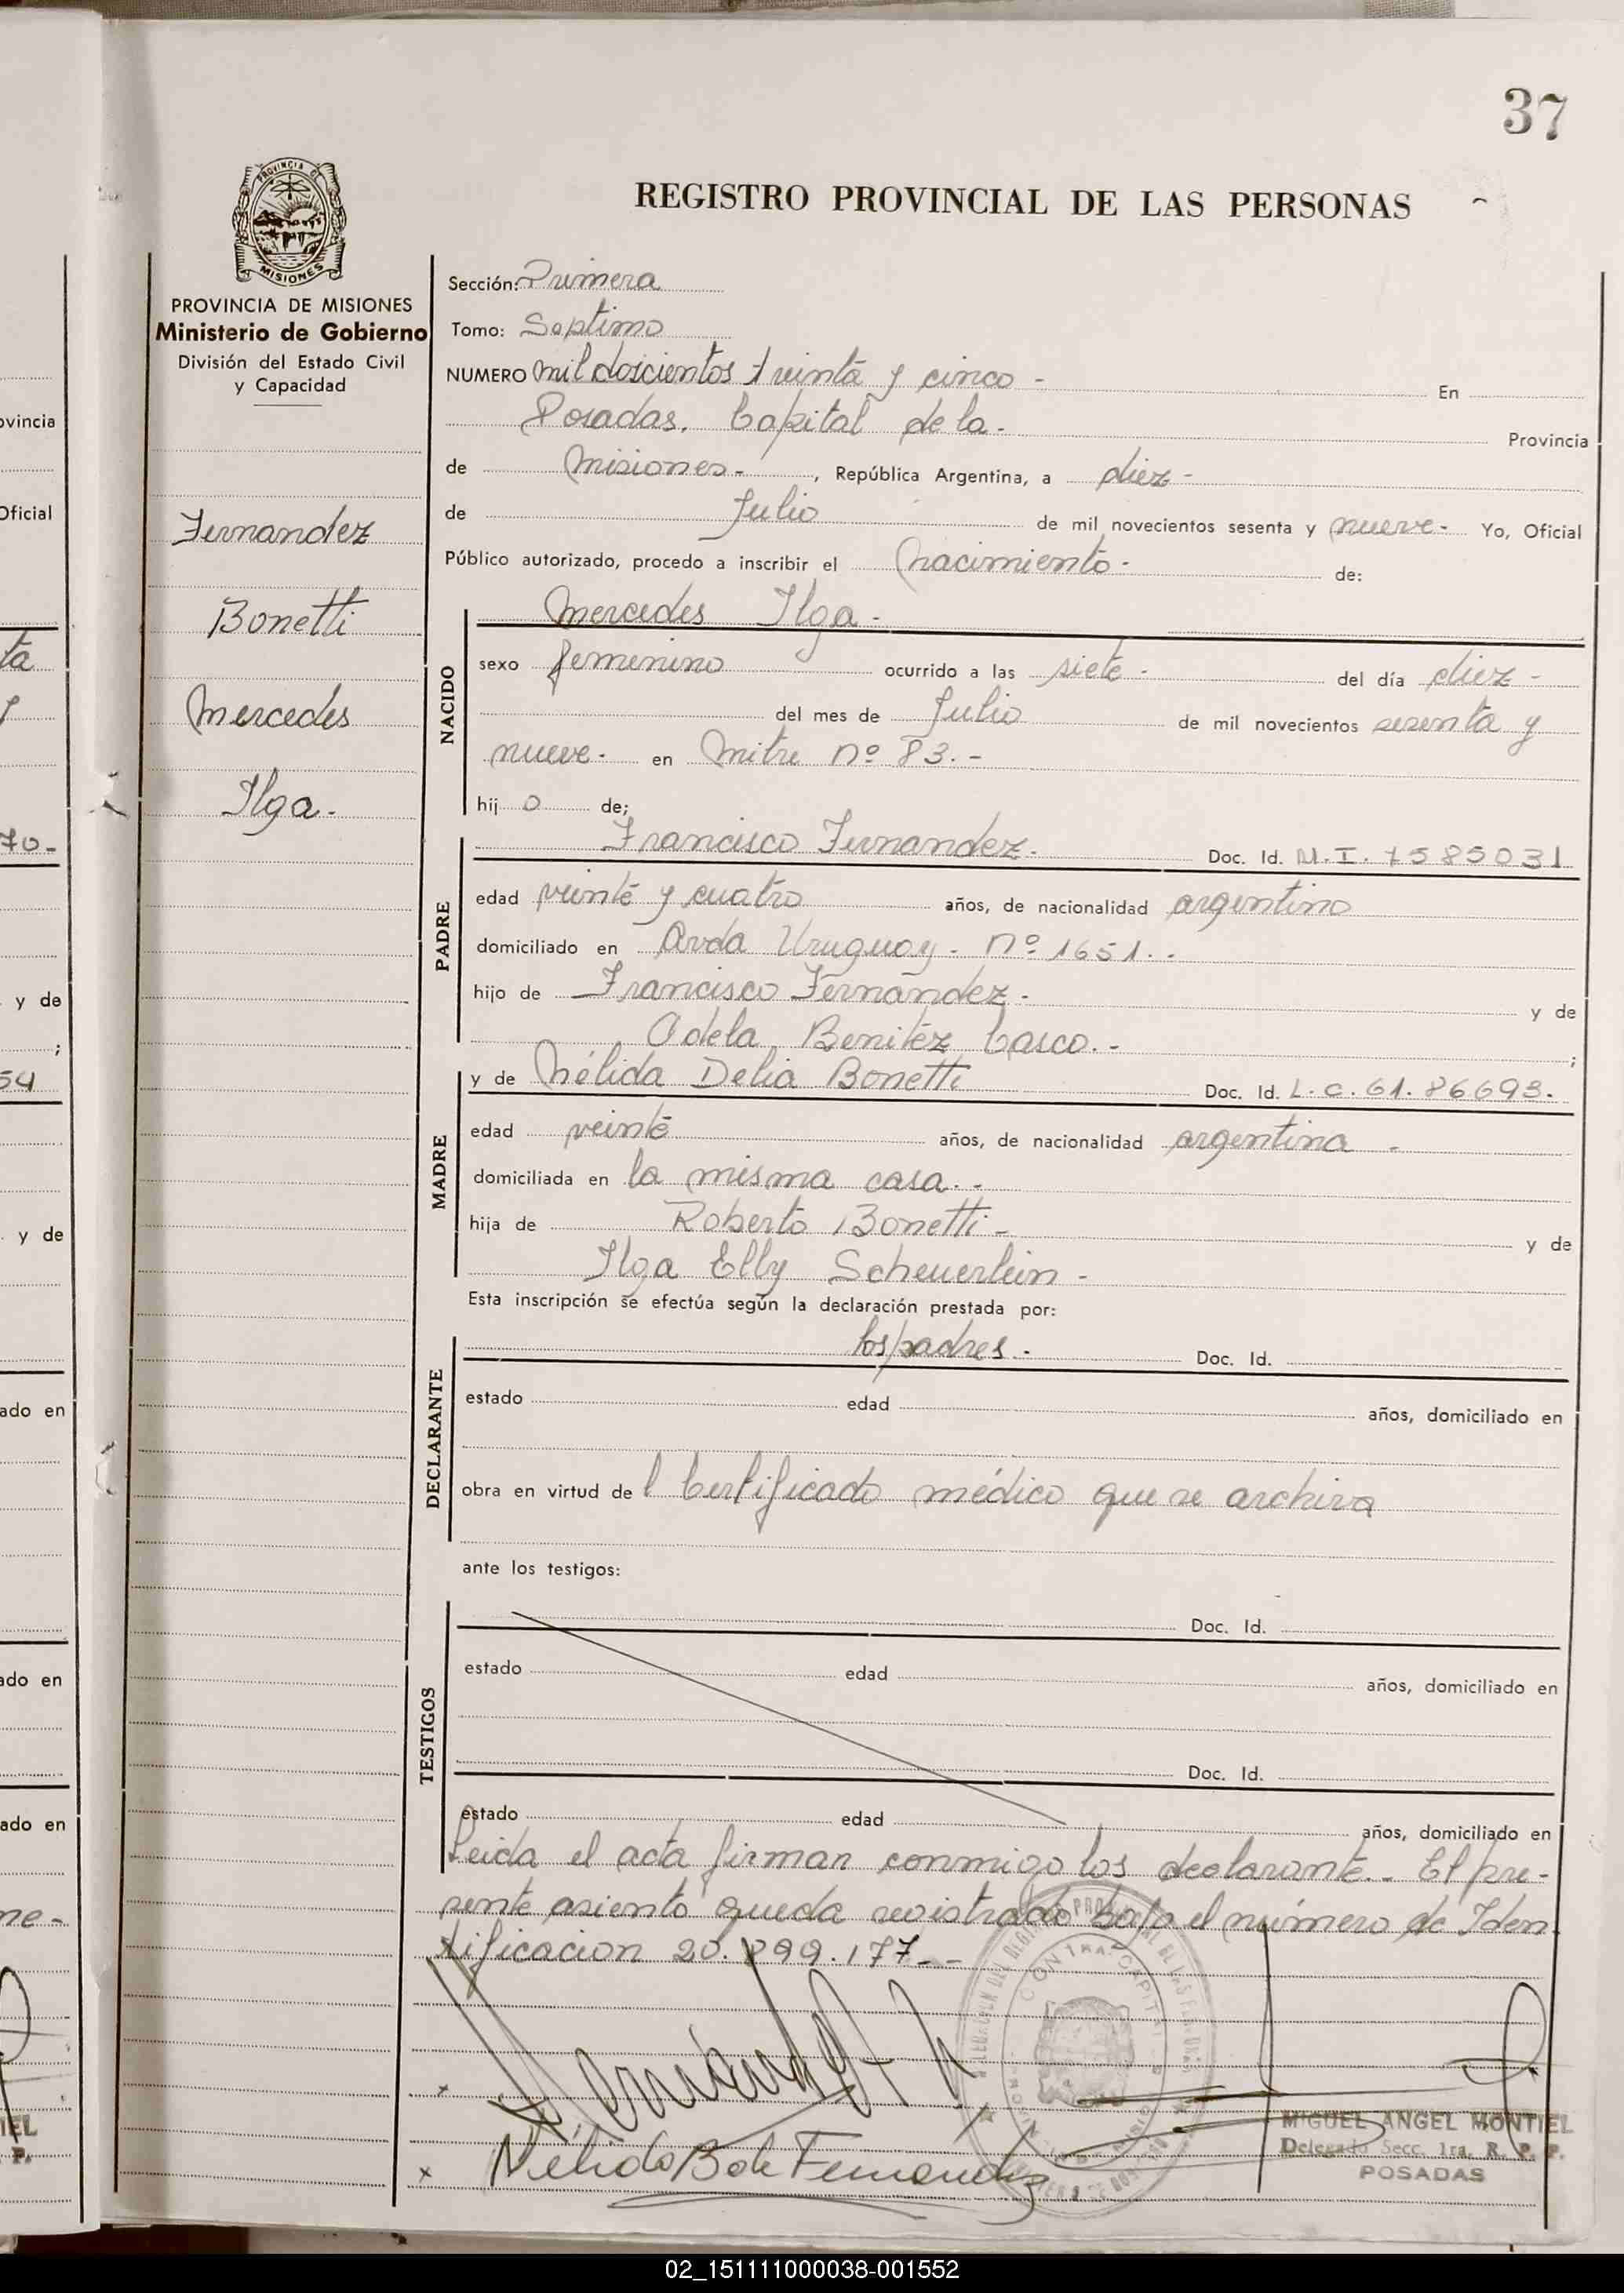 37
REGISTRO PROVINCIAL DE LAS PERSONAS
PROVINCIA DE
MISIONES
PROVINCIA DE MISIONES
Ministerio de Gobierno
División del Estado Civil
y Capacidad
Fernandez
Bonetti
Mercedes
Ilga.
Sección: Primera
Tomo: Septimo
NUMERO mil doscientos treinta y cinco - En
Posadas. Capital de la - Provincia
de Misiones -, República Argentina, a diez -
de Julio de mil novecientos sesenta y nueve - Yo, Oficial
Público autorizado, procedo a inscribir el nacimiento - de:
Mercedes Ilga -
NACIDO
sexo femenino ocurrido a las siete - del día diez -
del mes de Julio de mil novecientos sesenta y
nueve - en Mitre nº 83. -
hij o de;
Francisco Fernandez. Doc. Id. M.I. 7585031
PADRE
edad veinte y cuatro años, de nacionalidad argentino
domiciliado en Avda Uruguay - nº 1651. -
hijo de Francisco Fernandez - y de
Adela Benitez Casco. - ;
y de Nélida Delia Bonetti Doc. Id. L.C. 61.86693.
MADRE
edad veinte años, de nacionalidad argentina -
domiciliada en la misma casa. -
hija de Roberto Bonetti - y de
Ilga Elly Scheuerlein -
Esta inscripción se efectúa según la declaración prestada por:
los padres - Doc. Id.
DECLARANTE
estado edad años, domiciliado en
obra en virtud de l Certificado médico que se archiva
ante los testigos:
Doc. Id.
TESTIGOS
estado edad años, domiciliado en
Doc. Id.
estado edad años, domiciliado en
Leida el acta firman conmigo los declarante.- El pre-
sente asiento queda registrado bajo el número de Iden
tificacion 20.899.177--
Nelida B de Fernandez
MIGUEL ANGEL MONTIEL
Delegado Secc. 1ra. R. P. P.
POSADAS
ovincia
Oficial
ta
y
70-
y de
;
54
y de
ado en
ado en
ado en
ne-
IEL
P.
02_151111000038-001552